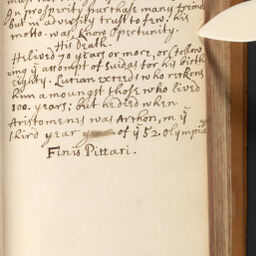 In prosperity purchase many friends
but in adversity trust to few. his
motto was, Know Opertunity.
His Death.
He lived 70 years or more, or (follow
-ing yͤ attompt of Suidas for his birth
eighty. Lucian exceeds who reckons
him amoungst those who lived
100. years; but he died when
Aristomenes was Archon, in yͤ
third year of yͤ 52. Olympiad
Finis Pittaci.